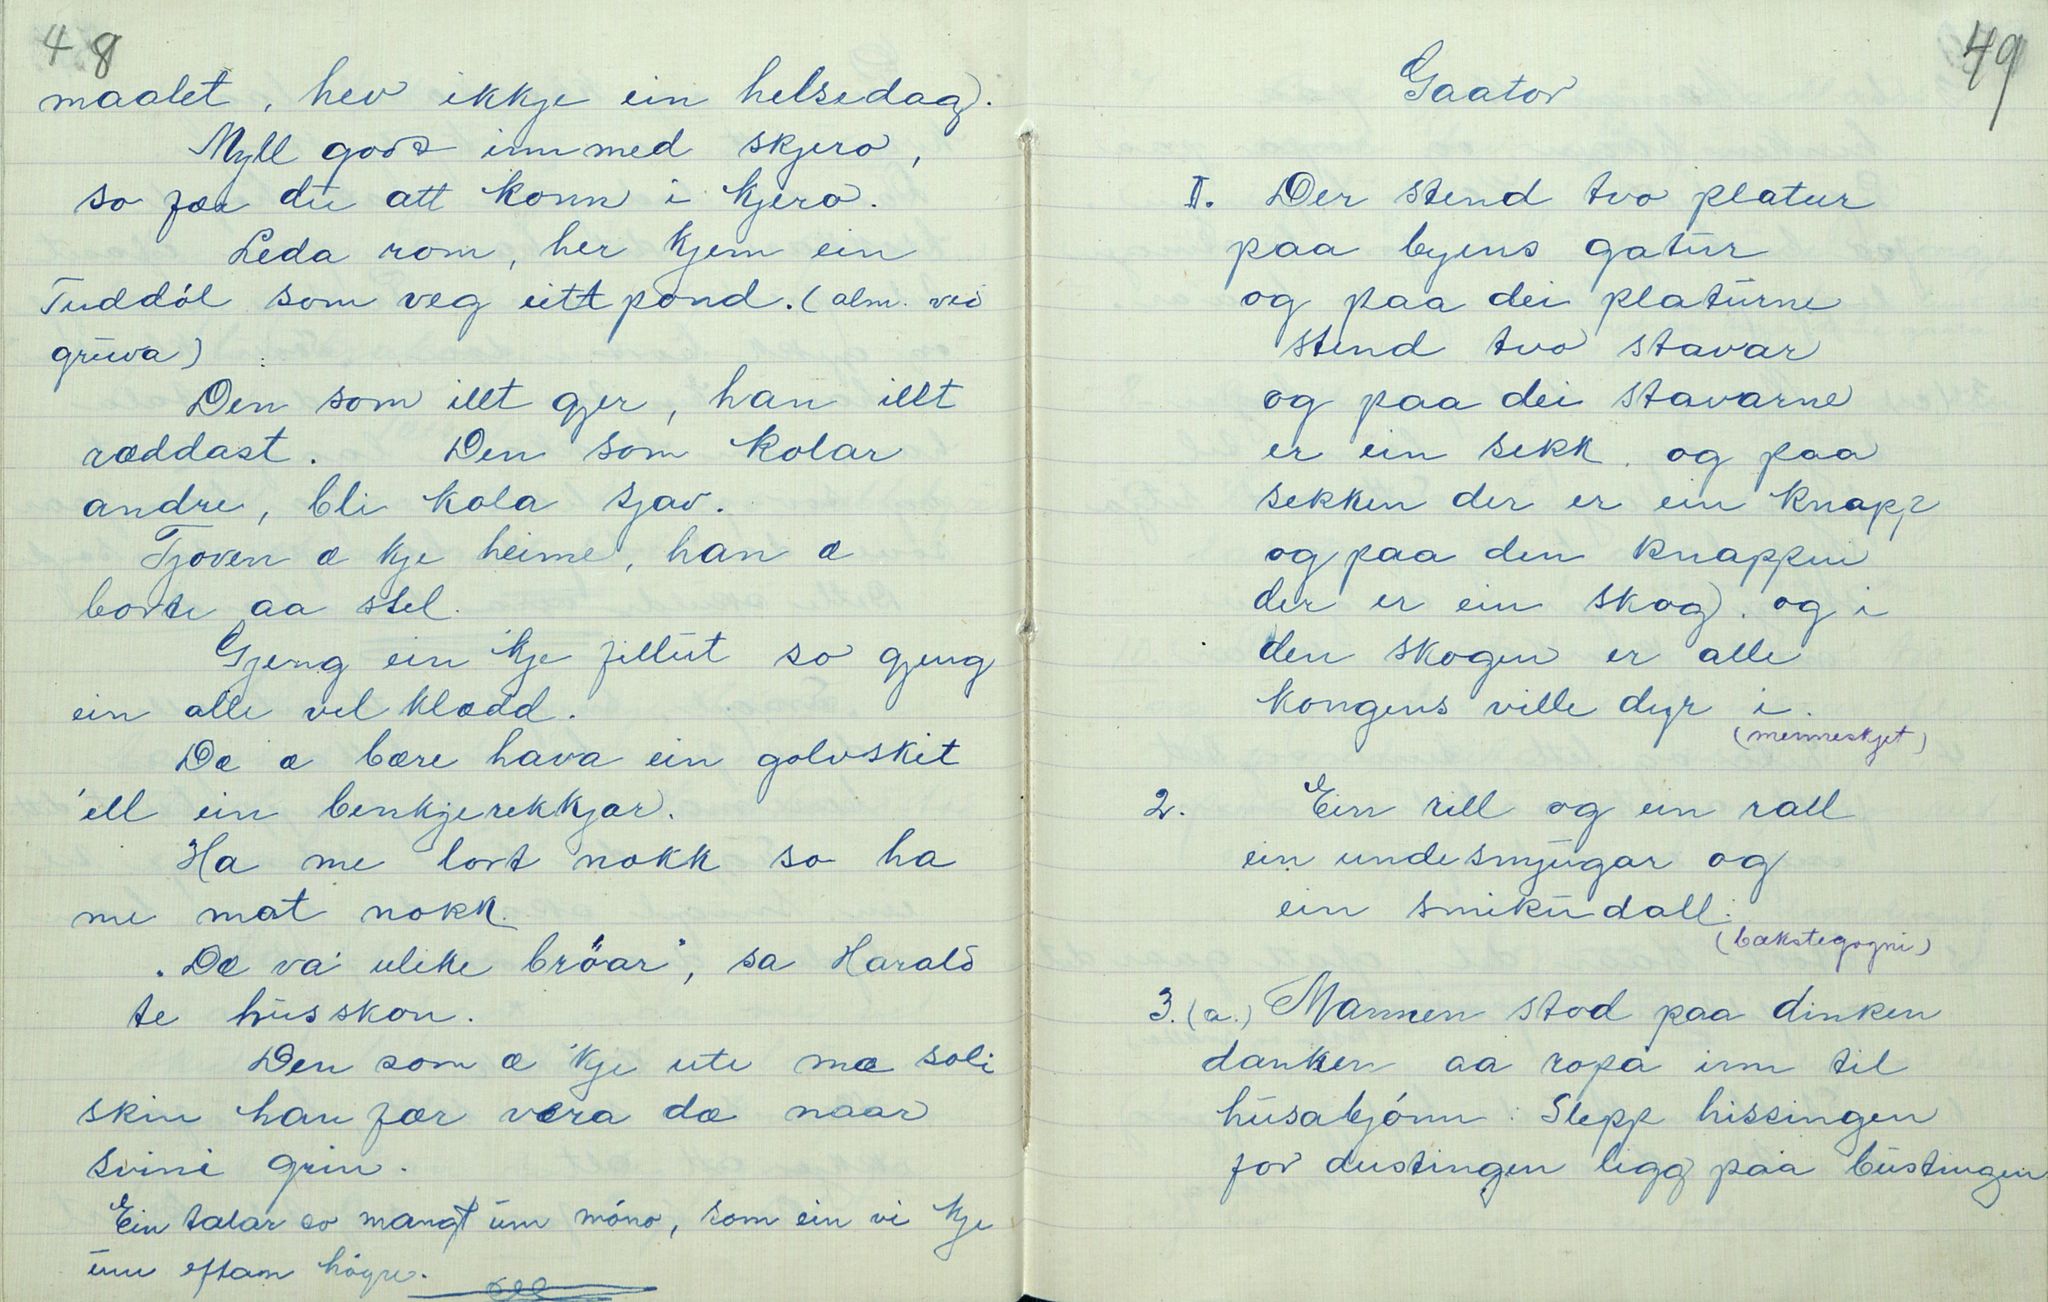 48
maalet, hev ikkje ein helsedag).
Myll godt innmed skjero,
so fær du att konn i kjero.
Leda rom, her kjem ein
Tuddól som veg eitt pond. (alm. ved
gruva)
Den som illt gjer, han illt
ræddast. Den som kolar
andre, bli kola sjav.
Tjoven æ kje heime, han æ
borte aa stel.
Gjeng ein 'kje fillut so gjeng
ein alle vel klædd.
Dæ æ bære hava ein golvskit
'ell ein benkjerekkjar.
Ha me lort nokk so ha
me mat nokk.
"Dæ va' ulike bröar", sa Harald
te husskon.
Den som æ 'kje ute mæ soli
skin han fær vera dæ naar
svini grin.
Ein talar so mangt um móno, som ein vi kje
um eftam högre.
49
Gaator
1. Der stend tvo platur
paa byens gatur
og paa dei platurne
stend tvo stavar
og paa dei stavarne
er ein sekk. og paa
sekken der er ein knapp
og paa den knappen
der er ein skog). og i
den skogen er alle
kongens ville dyr i.
(menneskjet)
2. Ein rill og ein rall
ein undesmjugar og
ein smikudall.
(bækstegogni)
3. (a.) Mannen stod paa dinken
danken aa ropa inn til
husabjónn: Slepp hissingen
for dustingen ligg paa bustingen